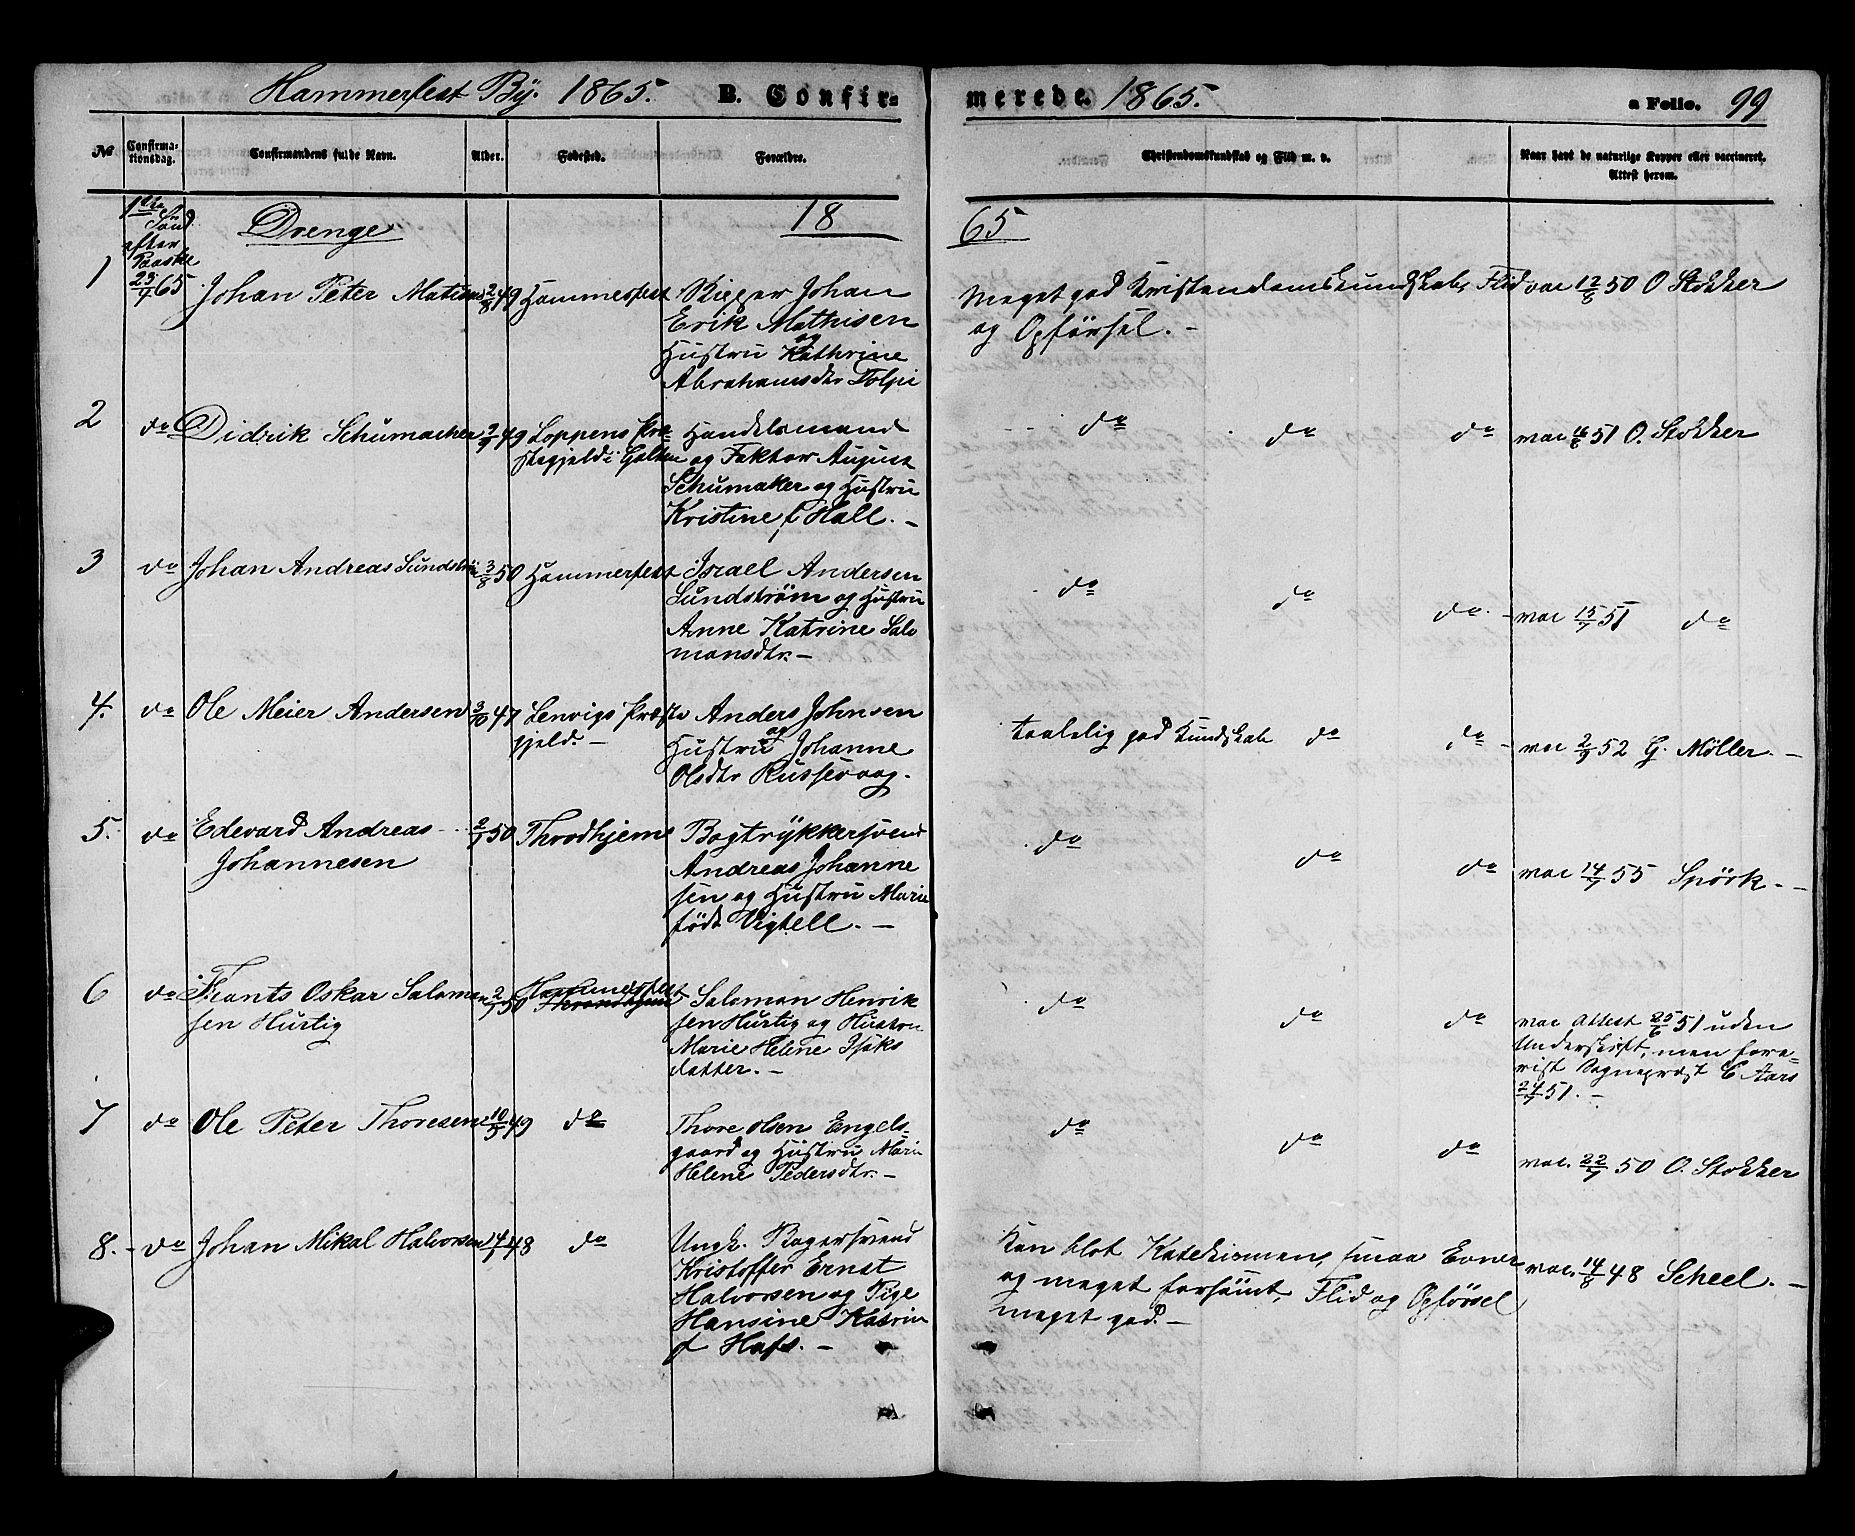 Hammerfest By. 1865. B. Confir-
merede. 1865. a Folio. 99
No Confirma-tionsdag. Confirmandens fulde Navn. Alder. Fødested. Forældre. Christendomskundskab og Flid m. v. Naar havt de naturlige Kopper eller vaccineret. Attest herom.
1ste Sønd. efter Paaske 23/4 65
Drenge
18 65
1 Johan Peter Matisen 2/8 49 Hammerfest Skipper Johan
Erik Mathisen
og
Hustru Kathrine
Abrahamsdtr Tolpi
Meget god Kristendomskundskab, Flid
og Opførsel. -
vac 12/8 50 O Stokker
2 do Didrik Schumacher 2/9 49 Loppens Præ-
stegjeld i Galten
Handelsmand
og Faktor August
Schumaker og Hustru
Kristine f Hall. -
do do do vac 6/8 51 O. Stokker
3 do Johan Andreas Sundström 3/8 50 Hammerfest Israel Andersen
Sundström og Hustru
Anne Katrine Salo
monsdtr. -
do do do. - vac 15/7 51 do
4. do Ole Meier Andersen 3/10 47 Lenvigs Præste
gjeld. -
Anders Johnsen
og
Hustru Johanne
Olsdtr Russevaag.
taalelig god Kundskab do do - vac 2/9 52 G. Møller. -
5. do Edevard Andreas
Johannesen
2/7 50 Throdhjem Bogtrykkersvend
Andreas Johanne
sen og Hustru Marie
født Vigtell. -
do do do vac 14/7 55 Spörk. -
6 do Frants Oskar Salomon
sen Hurtig
2/7 50 Hammerfest
Salomon Henrik
sen Hurtig og Hustru
Marie Helene Isaks
datter. -
do do do vac Attest 25/6 51 uden
Underskrift, men
Sognepræst C Aars
24/7 51. -
7 do Ole Peter Thoresen 10/5 49 do Thore Olsen Engels-
gaard og Hustru Marie
Helene Pedersdtr. -
do do do vac. 22/7 50 O. Stokker
8. - do Johan Mikal Halvorsen 14/7 48 do Ungk. Bagersvend
Kristoffer Ernst
Halvorsen og Pige
Hansine Katrin
f Hass. -
Kan blot Katekismen, smaa Evner
og meget forsømt, Flid og Opførsel
meget god. -
vac. 14/8 48 Scheel. -